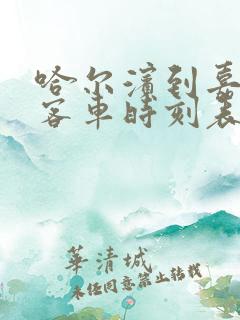 哈尔滨到嘉
客车时刻表
華清城
未经同意禁止转载